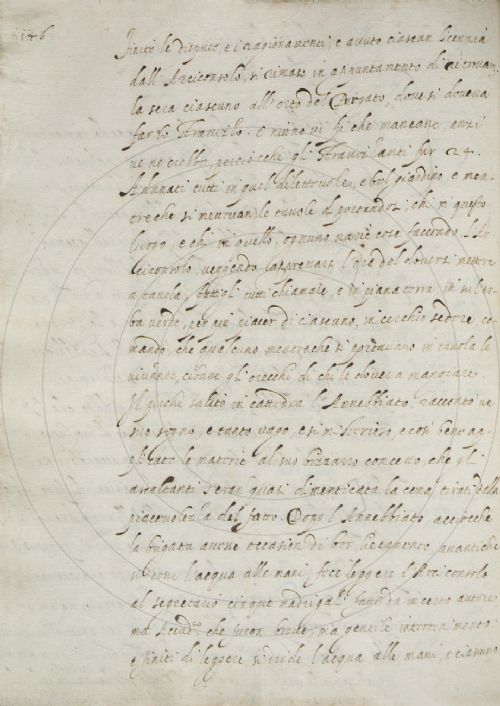 146
finite le dispute, e i ragionamenti, e avuto ciascun licenzia
dall'Arciconsolo, si rimase in appuntamento di ritrovarsi
la sera ciascuno all'orto del Corsato, dove si doveva
far lo Stravizzo. e niuno vi fu che mancasse, anzi
ve ne crebbe, perciocche gli Stravizanti fur 24.
Adunati tutti in quel dilettevole, e bel giardino e men-
tre che si mettevan le tavole diportandosi, chi in questo
luogo, e chi in quello, ognuno varie cose facendo, L'Ar
ciconsolo, veggendo l'ora del doversi mettere
a tavola, fattoli tutti chiamare, e in piana terra in su l'er-
ba verde, per più piacer di ciascuno, in cerchio sedere, co-
mandò, che qualcuno, mentreche si portavano in tavola le
vivande, cibasse gli orecchi di chi le doveva mangiare.
Il perche salito in cattedra l'Annebbiato, raccontò un
suo sogno e tanto vago e sì misterioso, e così bene ap-
plicato le materie al suo bizzarro concetto, che gli
ascoltanti s'eran quasi dimenticata la cena, tirati dalla
piacevolezza del fatto. Dopo l'Annebbiato, acciocche
la brigata avesse occasion di ber avantiche
si desse l'acqua alle mani, fece leggere l'Arciconsolo
al segretario cinque madrigali d'incerto autore
ma che furon breve, ma gentile intertenimento
e finiti di leggere si diede l'acqua alle mani, e ciascuno